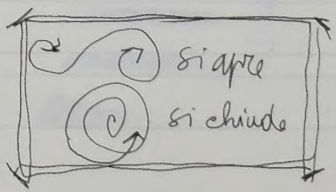 si apre
si chiude